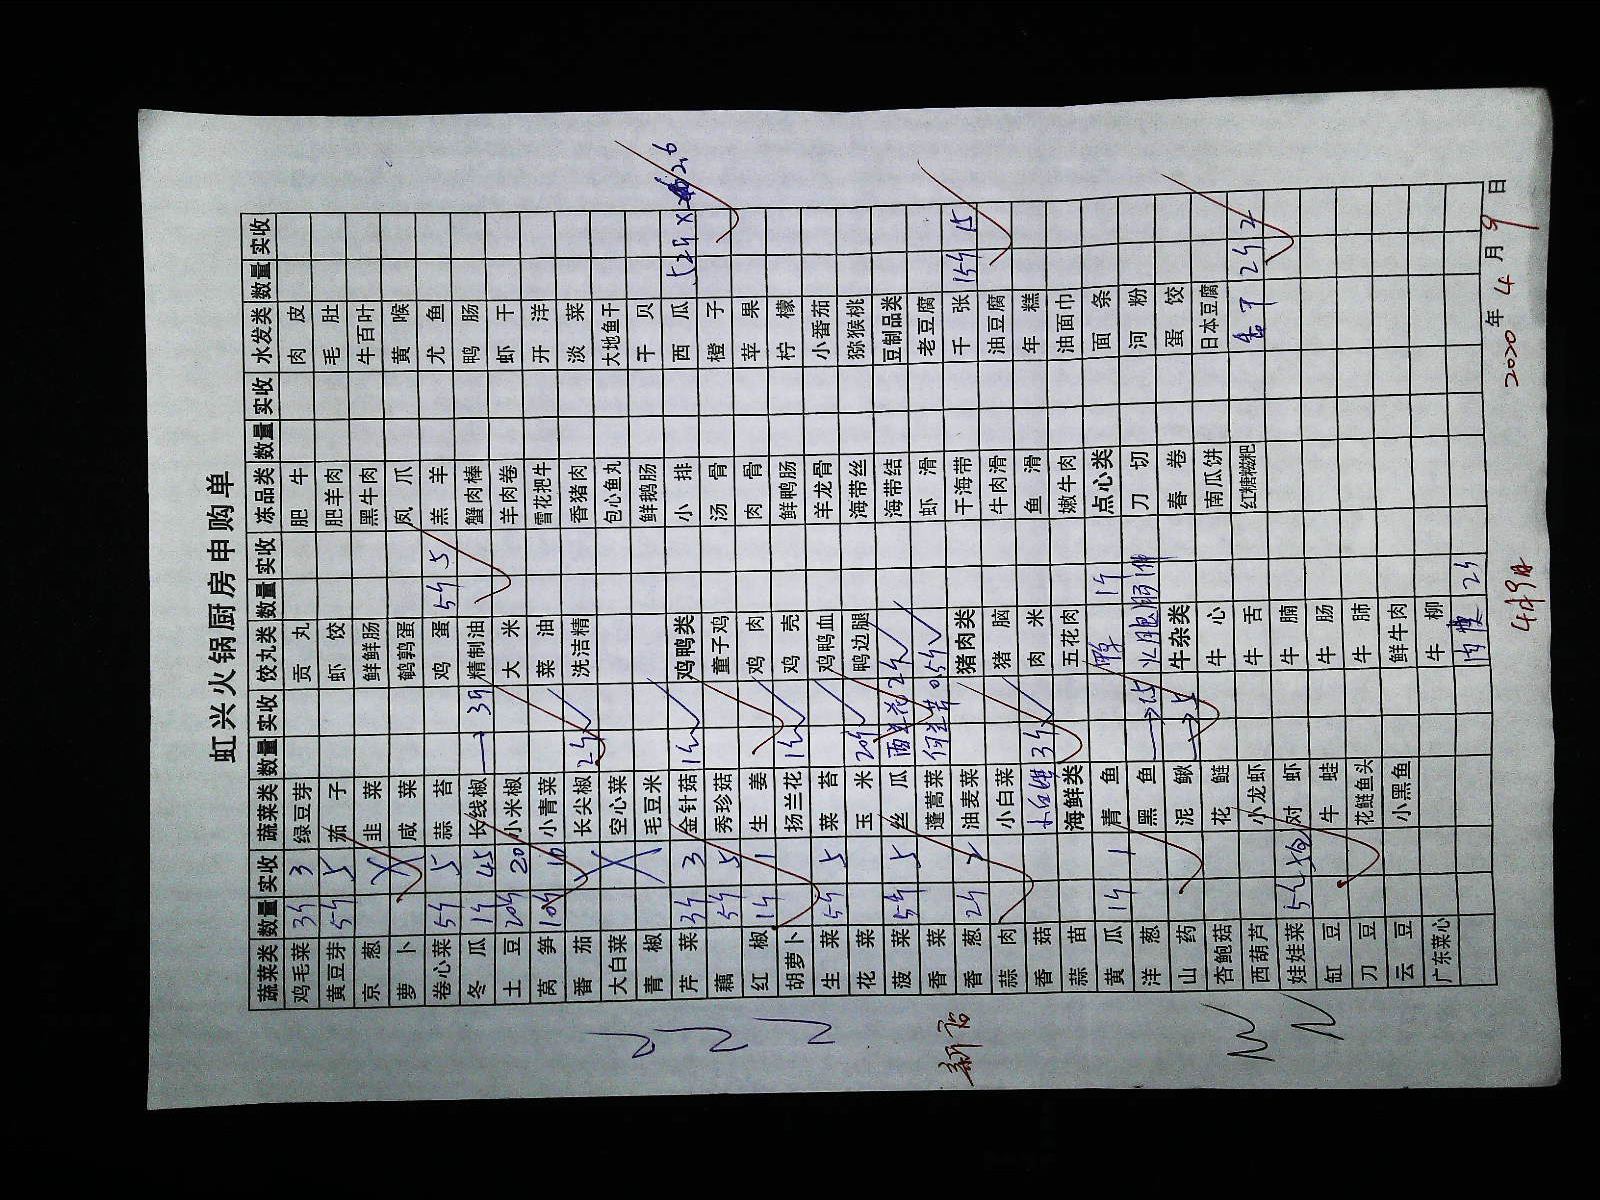 虹兴火锅厨房申购单
蔬菜类 数量 实收 蔬菜类 数量 实收 饺丸类 数量 实收 冻品类 数量 实收 水发类 数量 实收
鸡毛菜 3斤 3 绿豆芽 贡丸 肥牛 肉皮
黄豆芽 5斤 5 茄子 虾饺 肥羊肉 毛肚
京葱 韭菜 鲜鲜肠 黑牛肉 牛百叶
萝卜 咸菜 鹌鹑蛋 凤爪 黄喉
卷心菜 5斤 5 蒜苔 鸡蛋 5斤 5 羔羊 尤鱼
冬瓜 1斤 45 长线椒 3斤 精制油 蟹肉棒 鸭肠
土豆 20斤 20 小米椒 大米 羊肉卷 虾干
莴笋 10斤 10 小青菜 菜油 雪花把牛 开洋
番茄 长尖椒 2斤 洗洁精 香猪肉 淡菜
大白菜 空心菜 包心鱼丸 大地鱼干
青椒 毛豆米 鲜鹅肠 干贝
芹菜 3斤 3 金针菇 鸡鸭类 小排 西瓜
藕 5斤 5 秀珍菇 童子鸡 汤骨 橙子
红椒 1斤 1 生姜 鸡肉 肉骨 苹果
胡萝卜 扬兰花 鸡壳 鲜鸭肠 柠檬
生菜 5斤 5 菜苔 鸡鸭血 羊龙骨 小番茄
花菜 玉米 20斤 鸭边腿 海带丝 猕猴桃
菠菜 5斤 5 丝瓜 海带结 豆制品类
香菜 蓬蒿菜 虾滑 老豆腐
香葱 2斤 2 油麦菜 猪肉类 干海带 千张 15斤 15
蒜肉 小白菜 猪脑 牛肉滑 油豆腐
香菇 3斤 肉米 鱼滑 年糕
蒜苗 海鲜类 五花肉 嫩牛肉 油面巾
黄瓜 1斤 1 青鱼 1斤 点心类 面条
洋葱 黑鱼 刀切 河粉
山药 泥鳅 牛杂类 春卷 蛋饺
杏鲍菇 花鲢 牛心 南瓜饼 日本豆腐
西葫芦 小龙虾 牛舌 红糖糍粑 2斤 2
娃娃菜 对虾 牛腩
缸豆 牛蛙 牛肠
刀豆 花鲢鱼头 牛肺
云豆 小黑鱼 鲜牛肉
广东菜心 牛柳
2斤
新店
4月9日
2020年4月9日